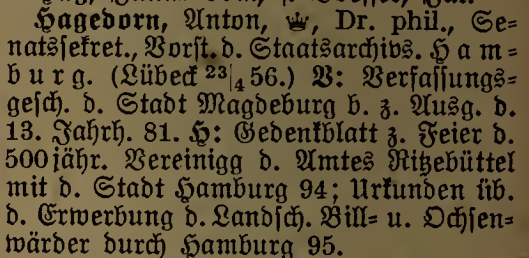 Hagedorn, Anton, ♕, Dr. phil., Se=
natssekret., Vorst. d. Staatsarchivs. Ham=
burg. (Lübeck 23|4 56.) V: Verfassungs=
gesch. d. Stadt Magdeburg b. z. Ausg. d.
13. Jahrh. 81. H: Gedenkblatt z. Feier d.
500jähr. Vereinigg d. Amtes Ritzebüttel
mit d. Stadt Hamburg 94; Urkunden üb.
d. Erwerbung d. Landsch. Bill= u. Ochsen=
wärder durch Hamburg 95.